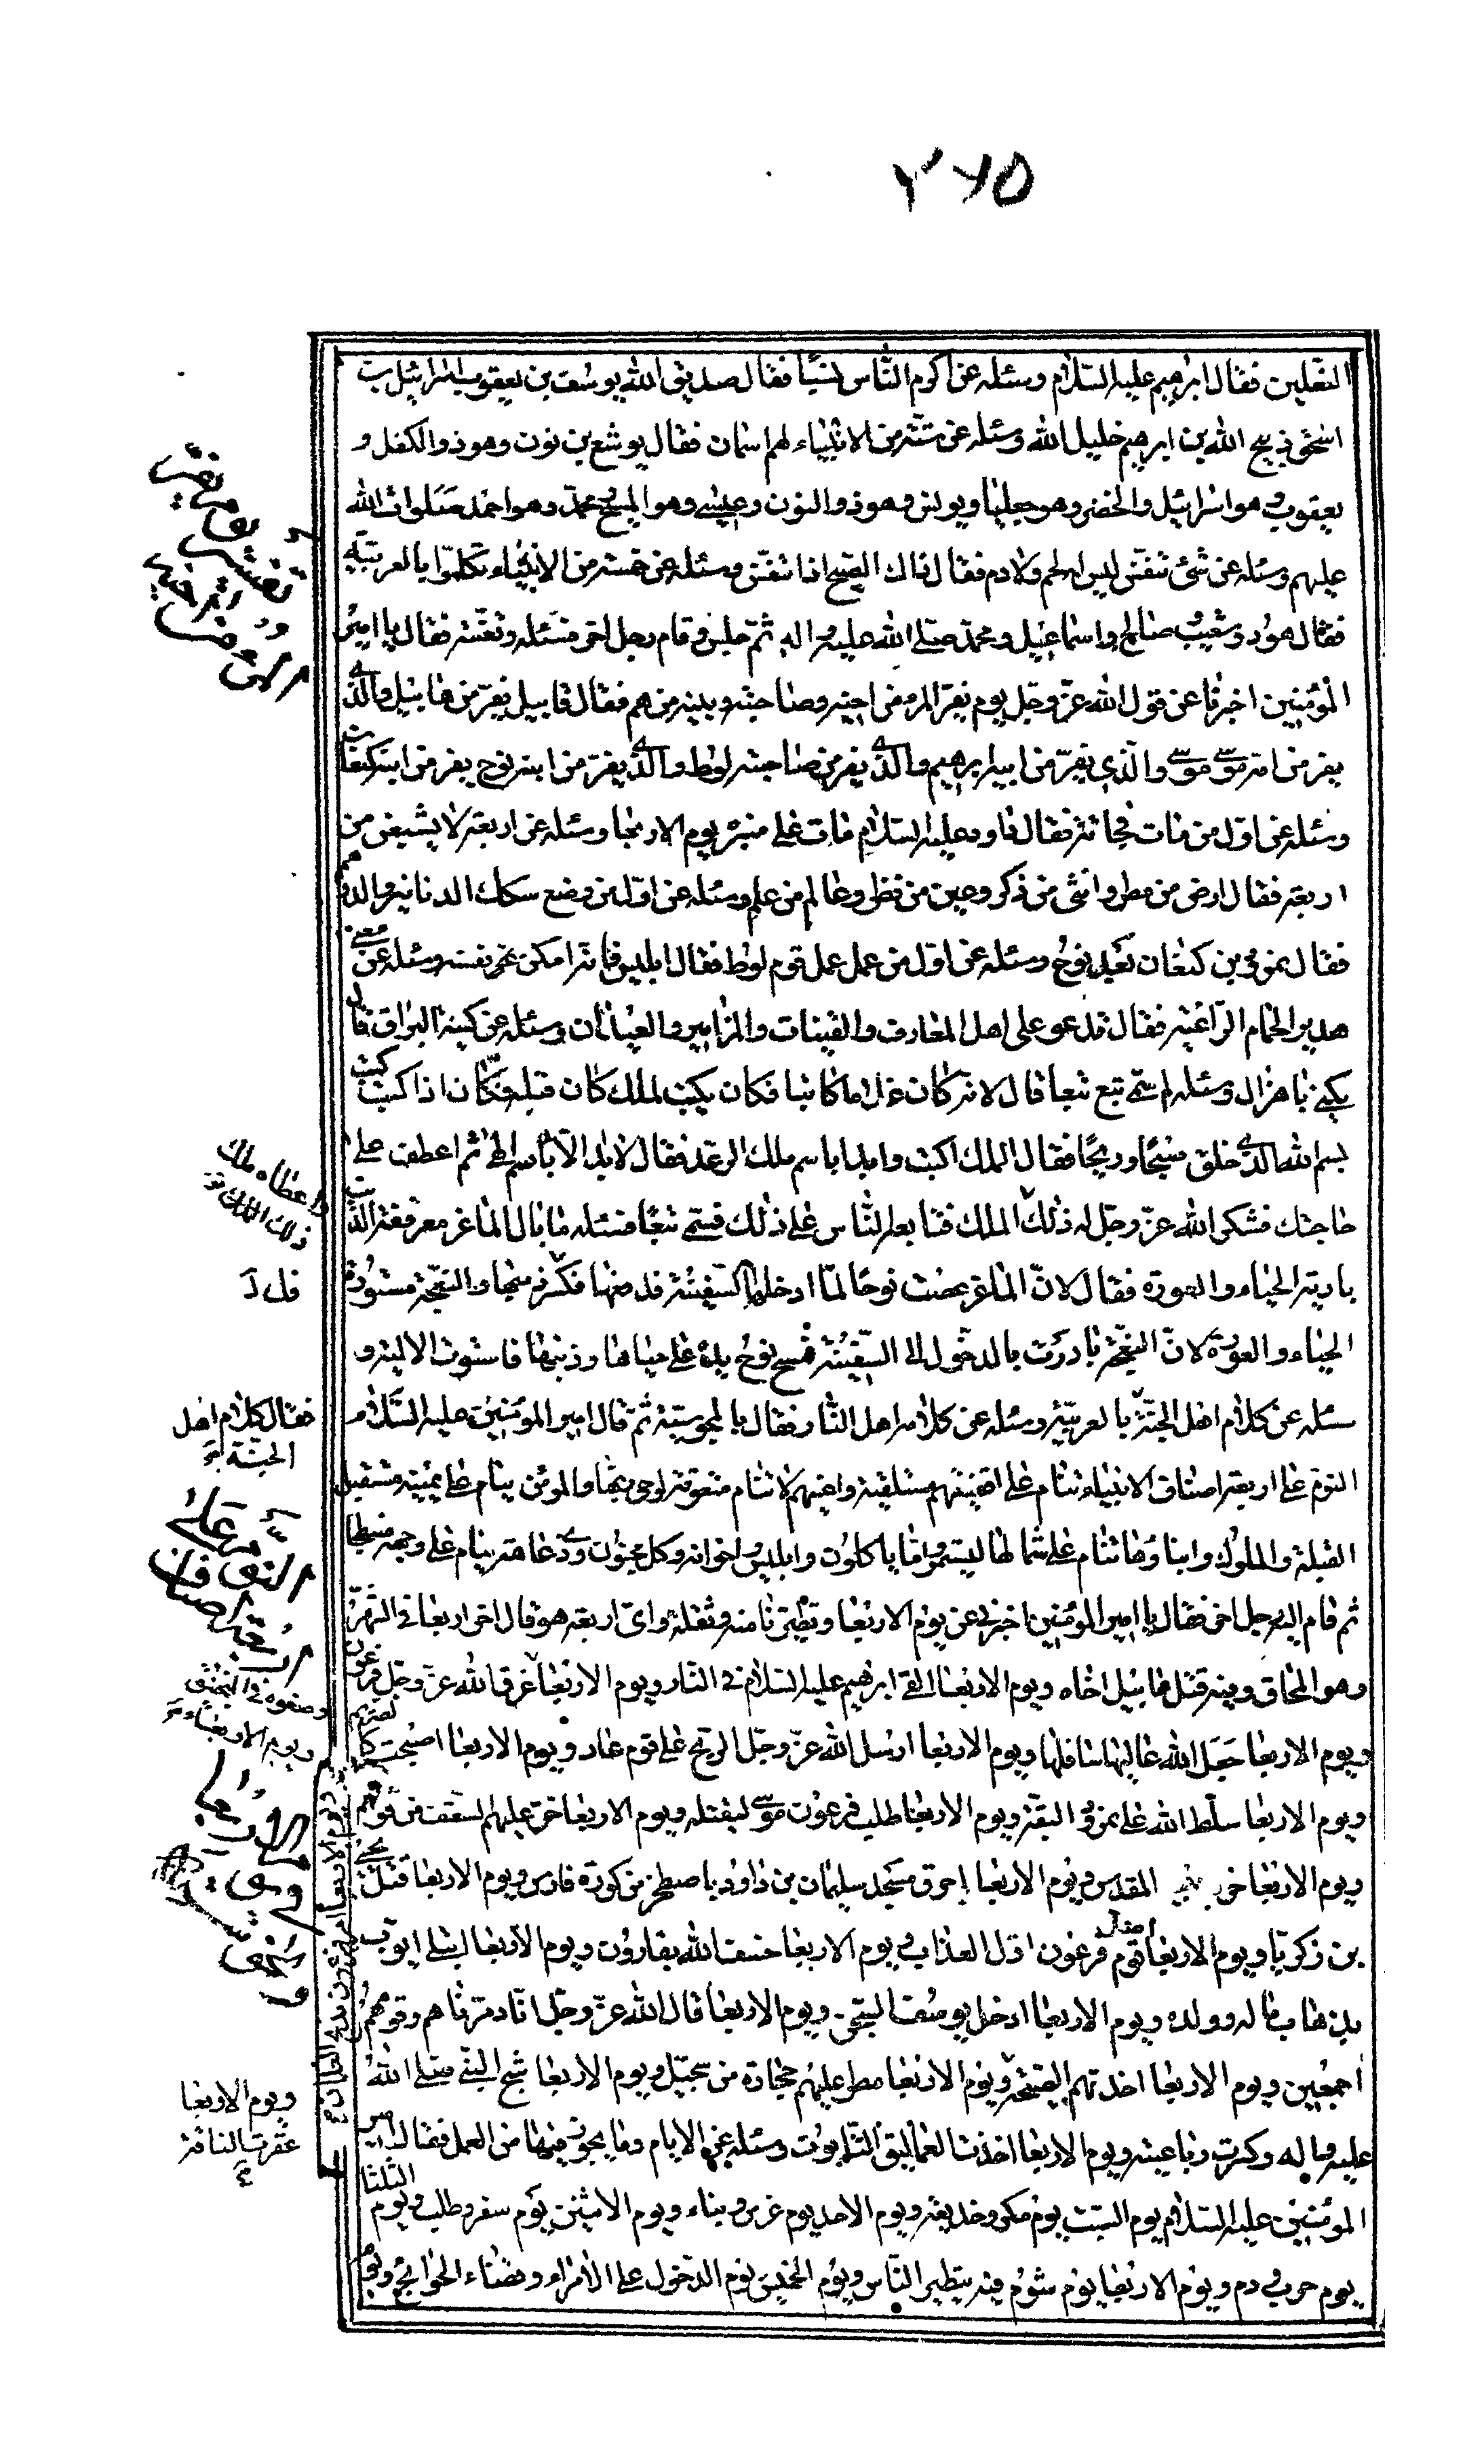 ٢٦٥
النعلين فقال ابرهيم عليه السلام وسئله عن اكرم الناس نسبًا فقال صديق الله يوسف بن يعقوب اسرائيل بن
اسحق ذبيح الله بن ابرهيم خليل الله وسئله عن ستة من الانبياء لهم اسمان فقال يوشع بن نون وهو ذو الكفل و
يعقوب وهو اسرائيل والخضر وهو حعليا ويونس وهو ذو النون وعيسى وهو المسيح ومحمد وهو احمد صلوات الله
عليهم وسئله عن شئ تنفس ليس له لحم ولا دم فقال ذاك الصبح اذا تنفس وسئله عن خمسة من الانبياء تكلموا بالعربية
فقال هود وشعيب وصالح واسماعيل ومحمد صلى الله عليه واله ثم جلس وقام رجل اخر فسئله وتعنته فقال يا امير
المؤمنين اخبرنا عن قول الله عز وجل يوم يفر المرء من اخيه وصاحبته وبنيه من هم فقال قابيل يفر من هابيل والذى
يفر من امه موسى موسى والذي يفر من ابيه ابرهيم والذى يفر من صاحبته لوط والذى يفر من ابنه نوح يفر من ابنه كنعان
وسئله عن اول من مات فجائة فقال داود عليه السلام مات على منبره يوم الاربعا وسئله عن اربعة لا يشبعن من
اربعة فقال ارض من مطر وانثى من ذكر وعين من نظر وعالم من علم وسئله عن اول من وضع سكك الدنانير والدرهم
فقال نمرود بن كنعان بعد نوح وسئله عن اول من عمل عمل قوم لوط فقال ابليس فانه امكن من نفسه وسئله عن معنى
هدير الحمام الراعبية فقال تدعو على اهل المعازف والقينات والمزامير والعيدان وسئله عن كنية البراق فقال
يكنى ابا هزال وسئله لم سمى تبع تبعا قال لانه كان غلاما كاتبا فكان يكتب لملك كان قبله فكان اذا كتب كتب
بسم الله الذى خلق صبحًا وريحًا فقال الملك اكتب وابدا باسم ملك الرعد فقال لا ابدا الا باسم الهى ثم اعطف على
حاجتك فشكر الله عز وجل له ذلك الملك فتابعه الناس على ذلك فسمى تبعًا فسئله ما بال الماعز معرفعة الذنب
بادية الحياء والعورة فقال لان الماعز عصت نوحًا لما ادخلها السفينة فدفعها فكسر ذنبها والنعجة مستورة
الحياء والعورة لان النعجة بادرت بالدخول الى السفينة فمسح نوح يده على حياها وذنبها فاستوت الالية و
سئله عن كلام اهل الجنة بالعربية وسئله عن كلام اهل النار فقال بالمجوسية ثم قال امير المؤمنين عليه السلام
النوم على اربعة اصناف الانبياء تنام على اقفيتهم مستلقية واعينهم لا تنام متوقعة لوحى ربها والمؤمن ينام على يمينه مستقبل
القبلة والملوك وابناؤها تنام على شمالها ليستمروا ما ياكلون وابليس واخوانه وكل مجنون وذى عاهة ينام على وجهه منبطحا
ثم قام اليه رجل اخر فقال يا امير المؤمنين اخبرنى عن يوم الاربعا وتطيرنا منه وثقله واى اربعة هو قال اخر اربعا فى الشهر
وهو المحاق وفيه قتل قابيل اخاه ويوم الاربعا القى ابرهيم عليه السلام فى النار ويوم الاربعا غرق الله عز وجل فرعون
ويوم الاربعا جعل الله عاليها سافلها ويوم الاربعا ارسل الله عز وجل الريح على قوم عاد ويوم الاربعا اصبحت كالصريم
ويوم الاربعا سلط الله على نمرود البقة ويوم الاربعا طلب فرعون موسى ليقتله ويوم الاربعا خر عليهم السقف من فوقهم
ويوم الاربعا خرب المقدس ويوم الاربعا احرق مسجد سليمان بن داود باصطخر من كورة فارس ويوم الاربعا قتل يحيى
بن زكريا ويوم الاربعا قوم فرعون اول العذاب ويوم الاربعا خسف الله بقارون ويوم الاربعا ابتلى ايوب
بذهاب ماله وولده ويوم الاربعا ادخل يوسف السجن ويوم الاربعا قال الله عز وجل انا دمرناهم وقومهم
اجمعين ويوم الاربعا اخذتهم الصيحة ويوم الاربعا مطر عليهم حجارة من سجيل ويوم الاربعا شج النبى صلى الله
عليه واله وكسرت رباعيته ويوم الاربعا اخذت العماليق التابوت وسئله عن الايام وما يجوز فيها من العمل فقال امير
المؤمنين عليه السلام يوم السبت يوم مكر وخديعة ويوم الاحد يوم غرس وبناء ويوم الاثنين يوم سفر وطلب ويوم الثلثا
يوم حرب ودم ويوم الاربعا يوم شوم فيه يتطير الناس ويوم الخميس يوم الدخول على الامراء وقضاء الحوايج ويوم
واعطاه ملك
ذلك الملك
فقال كلام اهل
الجنة
النوم على
اربعة اصناف
وضعوه فى المنجنيق
ويوم الاربعاء
ويوم الاربعا
عقرت الناقة